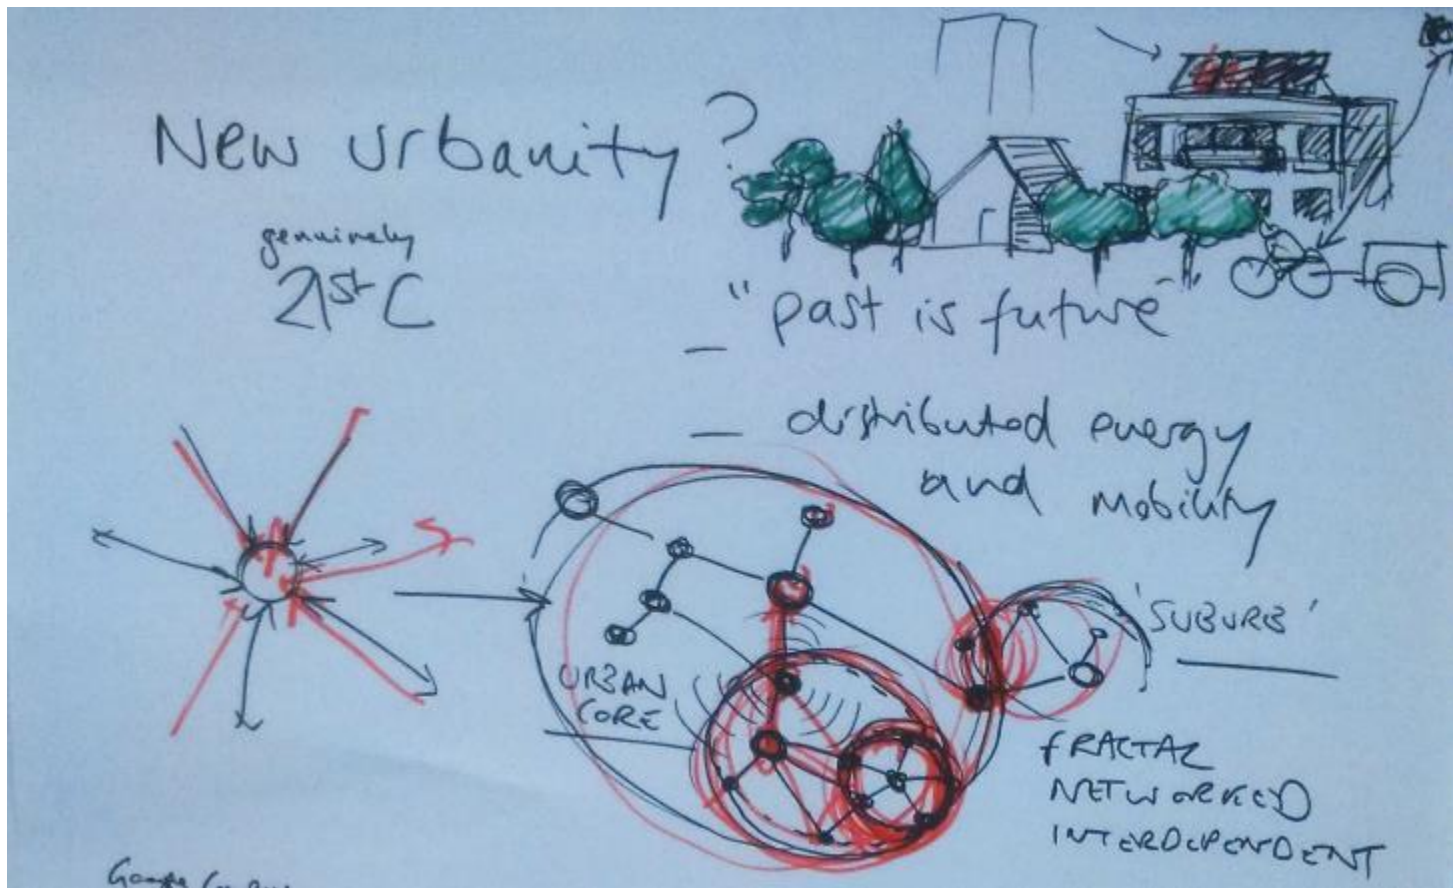 New urbanity?
genuinely
21st C
"past is future"
— distributed energy
and mobility
'SUBURB'
URBAN
CORE
FRACTAL
NETWORKED
INTERDEPENDENT